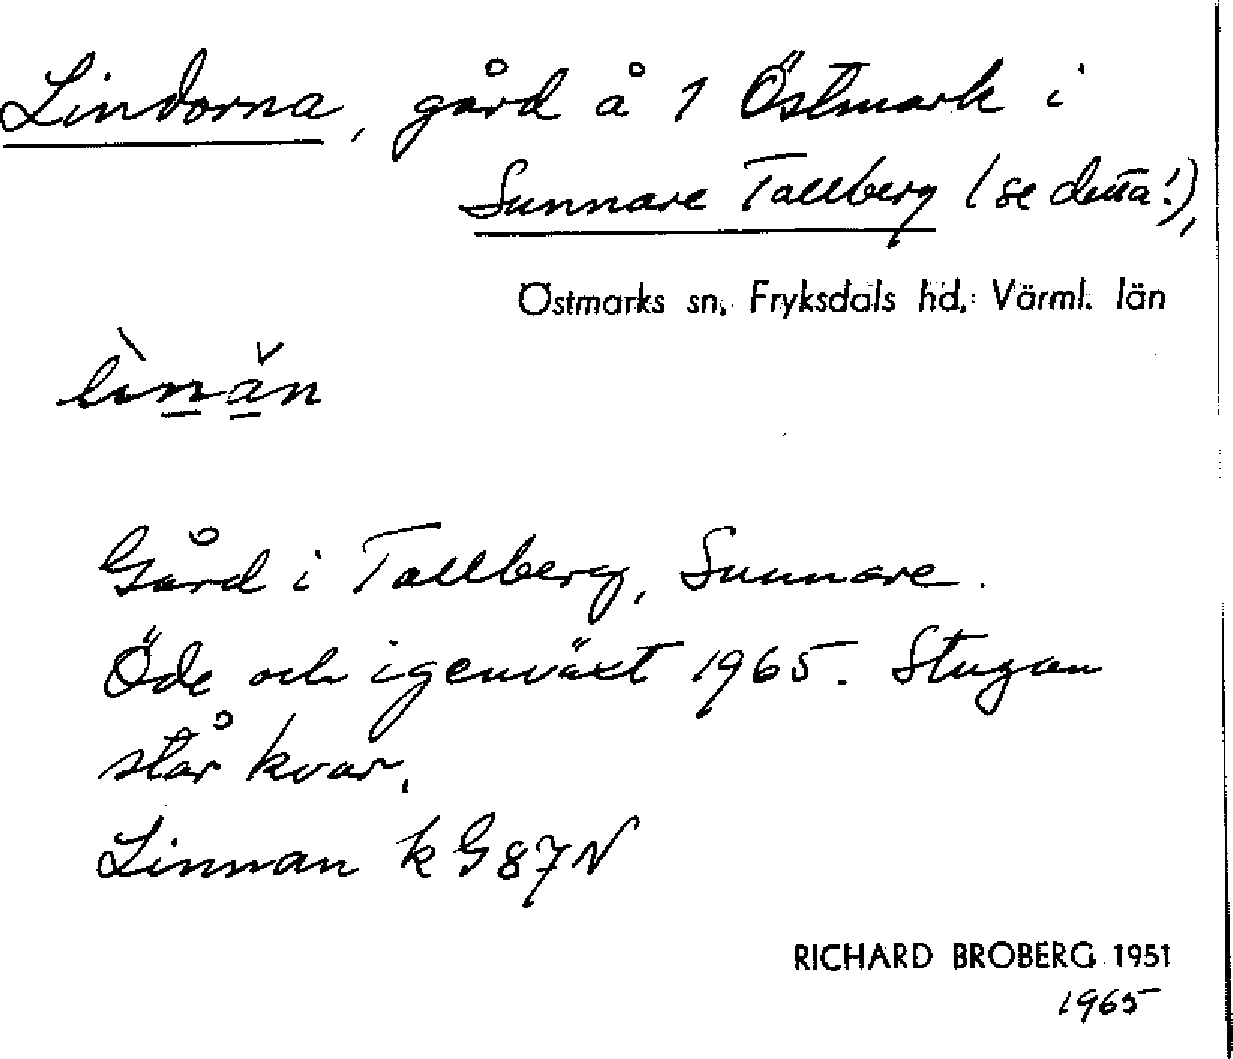 Lindorna, gård å 1 Östmark i
Sunnare Tallberg (se detta!),
Östmarks sn, Fryksdals hd, Värml. län
lìnǎn
Gård i Tallberg, Sunnare.
Öde och igenväxt 1965. Stugan
står kvar.
Linnan k G 87 N
RICHARD BROBERG 1951
1965